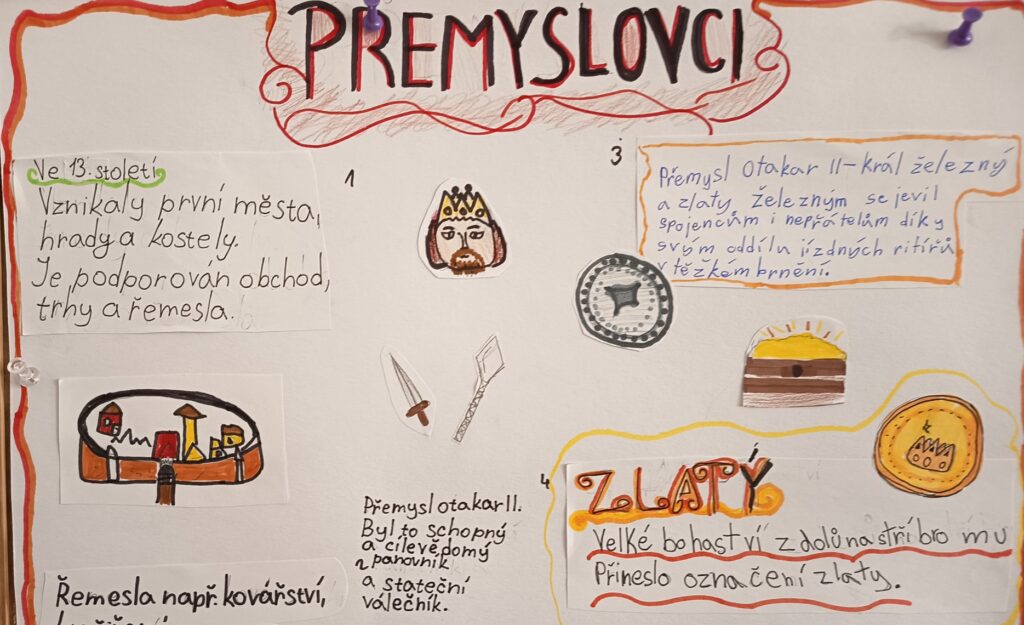 PŘEMYSLOVCI
Ve 13. století
Vznikaly první města,
hrady a kostely.
Je podporován obchod,
trhy a řemesla.
1
3
Přemysl Otakar II – král železný
a zlaty Železným se jevil
spojencům i nepřátelům díky
svým oddílu jízdných ritířů
v těžkém brnění.
Přemysl otakar II.
Byl to schopný
a cílevědomý
2 panovník
a stateční
válečník.
4
ZLATÝ
Velké bohaství z dolů na stříbro mu
Přineslo označení zlaty.
Řemesla např. kovářství,